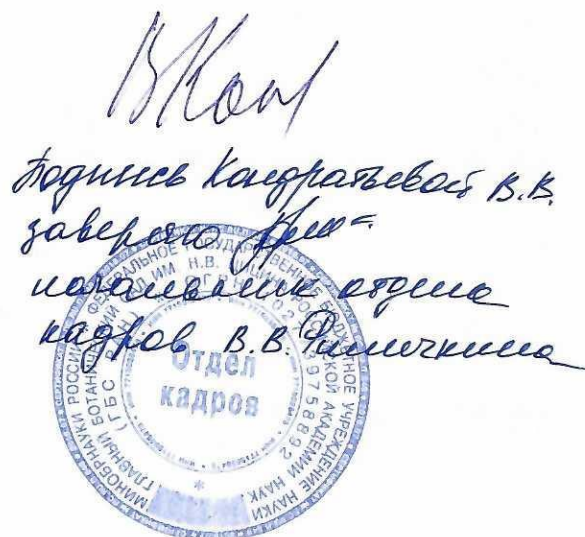 ВКон
Подпись Кондратьевой В.В.
заверяю
начальник отдела
кадров В.В.
МИНОБРНАУКИ РОССИИ ФЕДЕРАЛЬНОЕ ГОСУДАРСТВЕННОЕ БЮДЖЕТНОЕ УЧРЕЖДЕНИЕ НАУКИ
ГЛАВНЫЙ БОТАНИЧЕСКИЙ САД ИМ. Н.В. ЦИЦИНА РОССИЙСКОЙ АКАДЕМИИ НАУК
(ГБС РАН)
Отдел
кадров